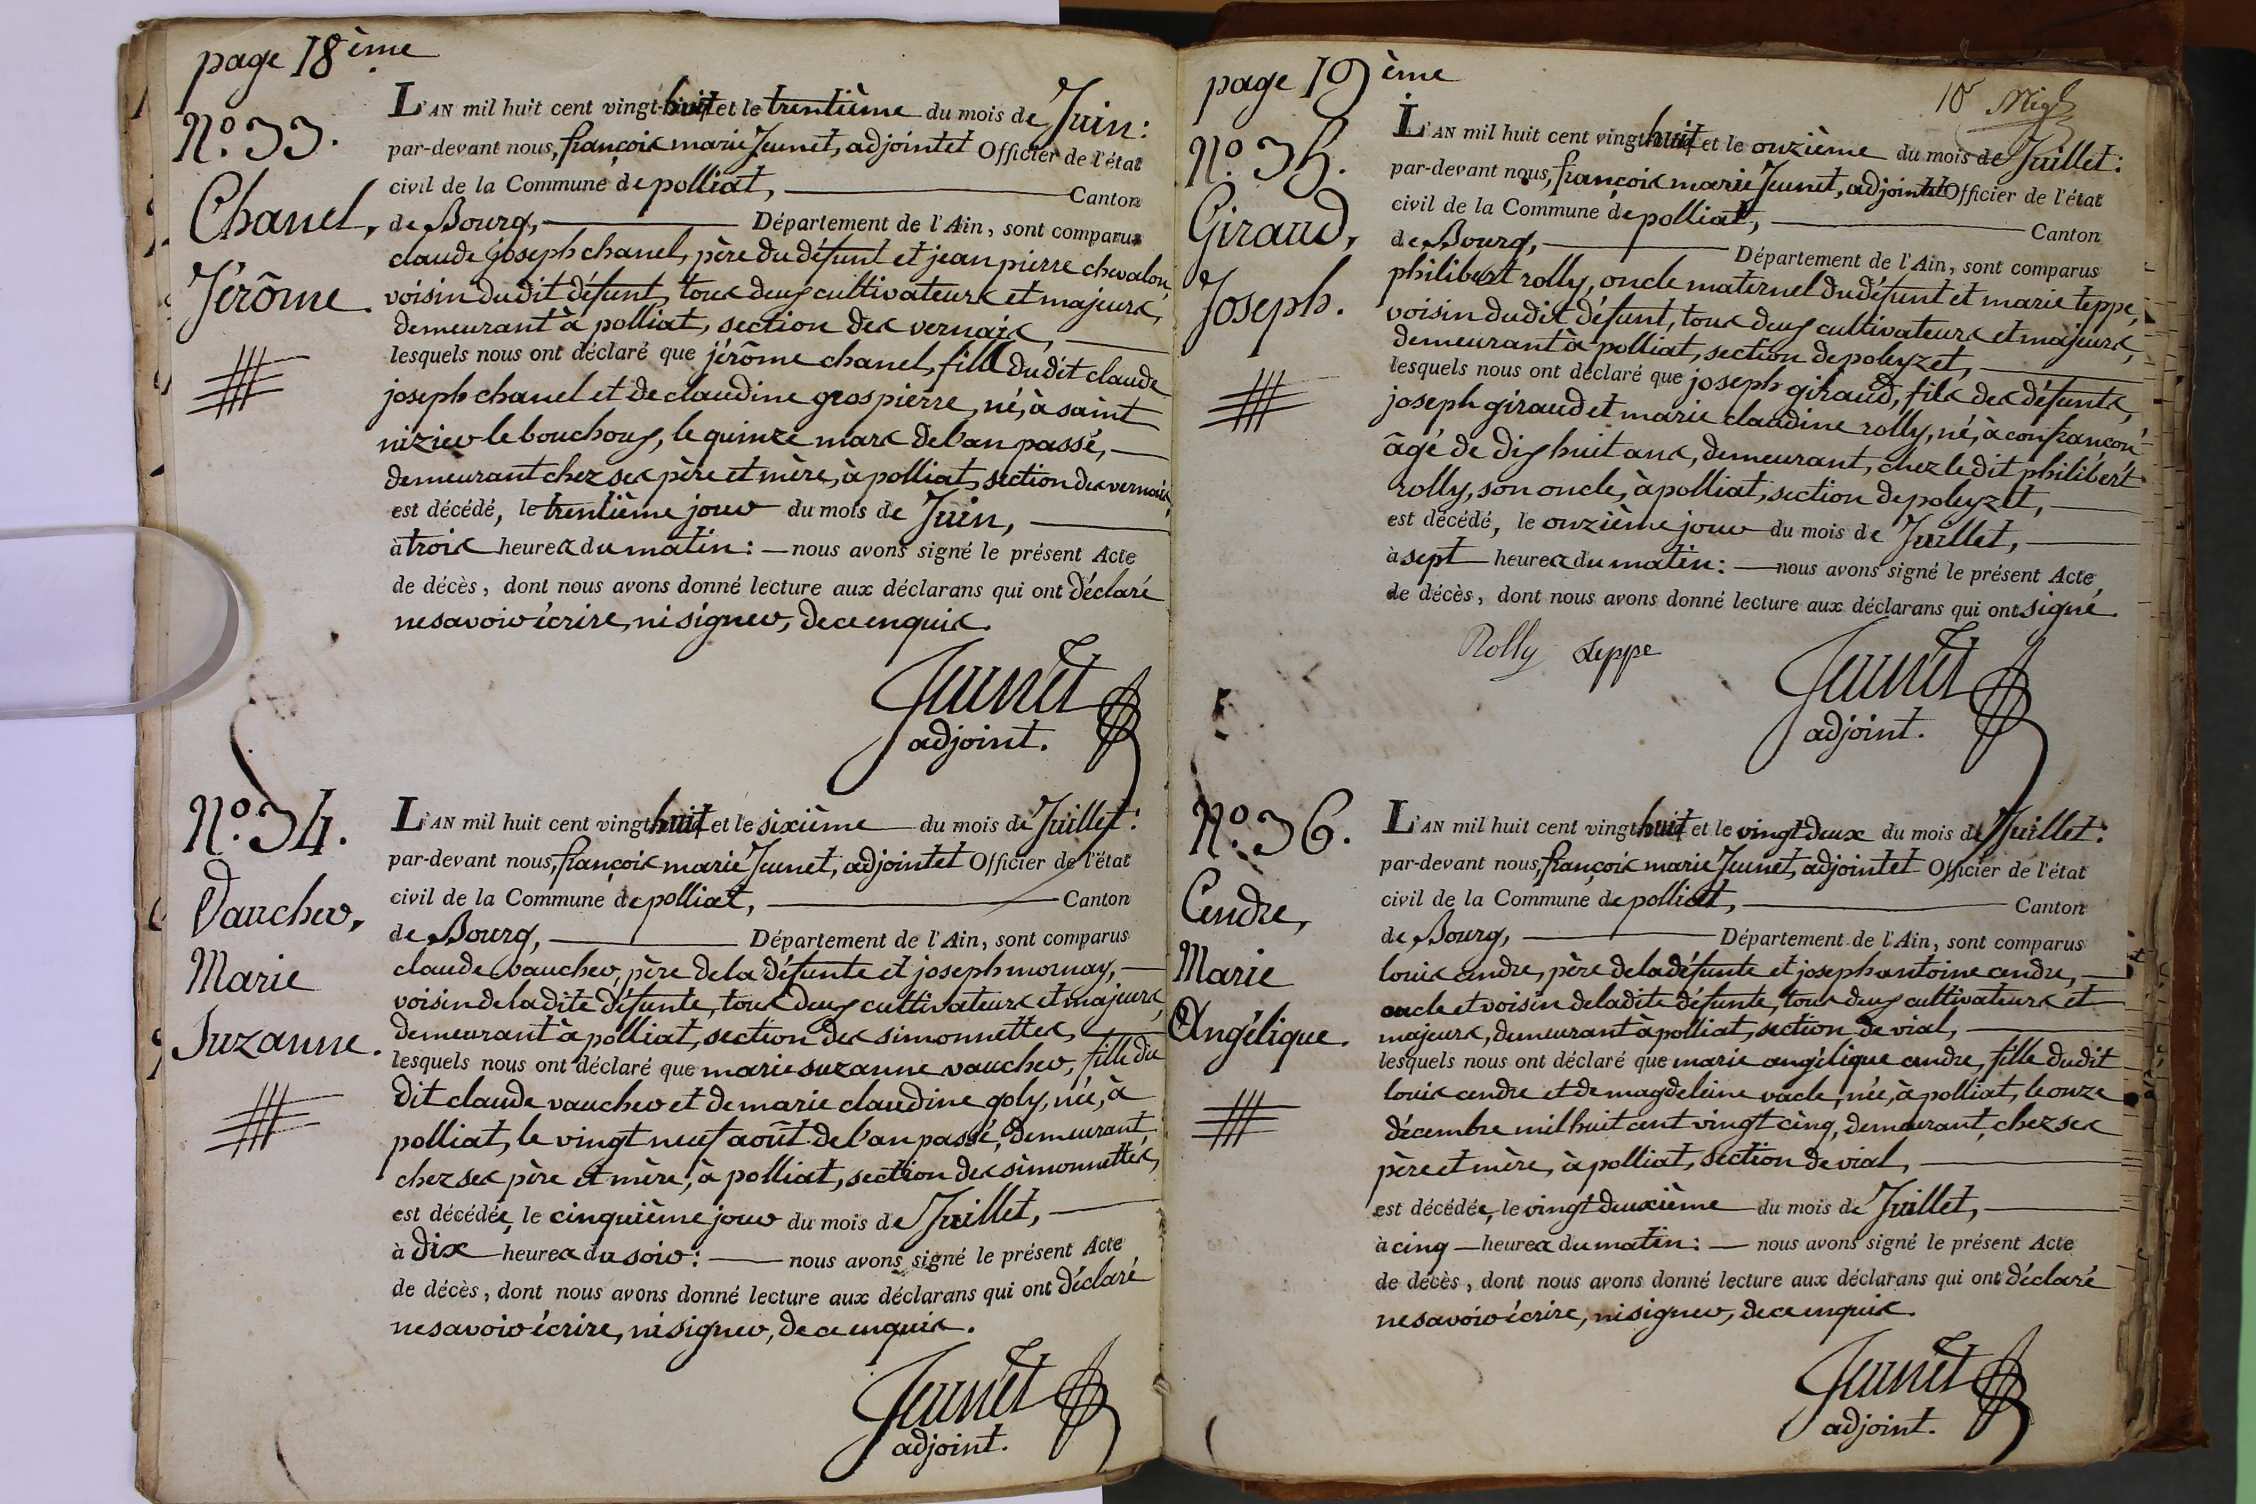 page 18ème
N.o 33.
Chanel,
Jérôme.
L'AN mil huit cent vingt-huit et le trentième du mois de Juin:
par-devant nous, françois marie Jeunet, adjoint et Officier de l'état
civil de la Commune de polliat, Canton
de Bourg, Département de l'Ain, sont comparus
claude joseph chanel, père du défunt et jean pierre chevalon,
voisin dudit défunt, tous deux cultivateurs et majeurs,
demeurant à polliat, section des vernais,
lesquels nous ont déclaré que jérôme chanel, fils dudit claude
joseph chanel et de claudine grospierre, né, à saint
nizier le bouchoux, le quinze mars de l'an passé,
demeurant chez ses père et mère, à polliat, section des vernais,
est décédé, le trentième jour du mois de Juin,
à trois heures du matin: nous avons signé le présent Acte
de décès, dont nous avons donné lecture aux déclarans qui ont déclaré
ne savoir écrire, ni signer, de ce enquis.
Jeunet
adjoint.
N.o 34.
Vaucher,
Marie
Suzanne.
L'AN mil huit cent vingt huit et le sixième du mois de Juillet:
par-devant nous, françois marie Jeunet, adjoint et Officier de l'état
civil de la Commune de polliat, Canton
de Bourg, Département de l'Ain, sont comparus
claude vaucher, père de la défunte et joseph mornay,
voisin de ladite défunte, tous deux cultivateurs et majeurs,
demeurant à polliat, section des simonnettes,
lesquels nous ont déclaré que marie suzanne vaucher, fille du
dit claude vaucher et de marie claudine goly, née, à
polliat, le vingt neuf août de l'an passé, demeurant
chez ses père et mère, à polliat, section des simonnettes,
est décédée, le cinquième jour du mois de Juillet,
à dix heures du soir: nous avons signé le présent Acte
de décès, dont nous avons donné lecture aux déclarans qui ont déclaré
ne savoir écrire, ni signer, de ce enquis.
Jeunet
adjoint.
page 19ème
10e
N.o 35.
Giraud,
Joseph.
L'AN mil huit cent vingt huit et le onzième du mois de Juillet:
par-devant nous, françois marie Jeunet, adjoint et Officier de l'état
civil de la Commune de polliat, Canton
de Bourg, Département de l'Ain, sont comparus
philibert rolly, oncle maternel du défunt et marie teppe,
voisin dudit défunt, tous deux cultivateurs et majeurs,
demeurant à polliat, section de poleyzet,
lesquels nous ont déclaré que joseph giraud, fils des défunts,
joseph giraud et marie claudine rolly, né, à confrançon,
âgé de dix huit ans, demeurant, chez ledit philibert
rolly, son oncle, à polliat, section de poleyzet,
est décédé, le onzième jour du mois de Juillet,
à sept heures du matin: nous avons signé le présent Acte
de décès, dont nous avons donné lecture aux déclarans qui ont signé.
Rolly teppe
Jeunet
adjoint.
N.o 36.
Cendre,
Marie
Angélique.
L'AN mil huit cent vingt huit et le vingt deux du mois de Juillet:
par-devant nous, françois marie Jeunet, adjoint et Officier de l'état
civil de la Commune de polliat, Canton
de Bourg, Département de l'Ain, sont comparus
louis cendre, père de la défunte et joseph antoine cendre,
oncle et voisin de ladite défunte, tous deux cultivateurs et
majeurs, demeurant à polliat, section de vial,
lesquels nous ont déclaré que marie angélique cendre, fille dudit
louis cendre et de magdeleine vacle, née, à polliat, le onze
décembre mil huit cent vingt cinq, demeurant, chez ses
père et mère, à polliat, section de vial,
est décédée, le vingt deuxième du mois de Juillet,
à cinq heures du matin: nous avons signé le présent Acte
de décès, dont nous avons donné lecture aux déclarans qui ont déclaré
ne savoir écrire, ni signer, de ce enquis.
Jeunet
adjoint.